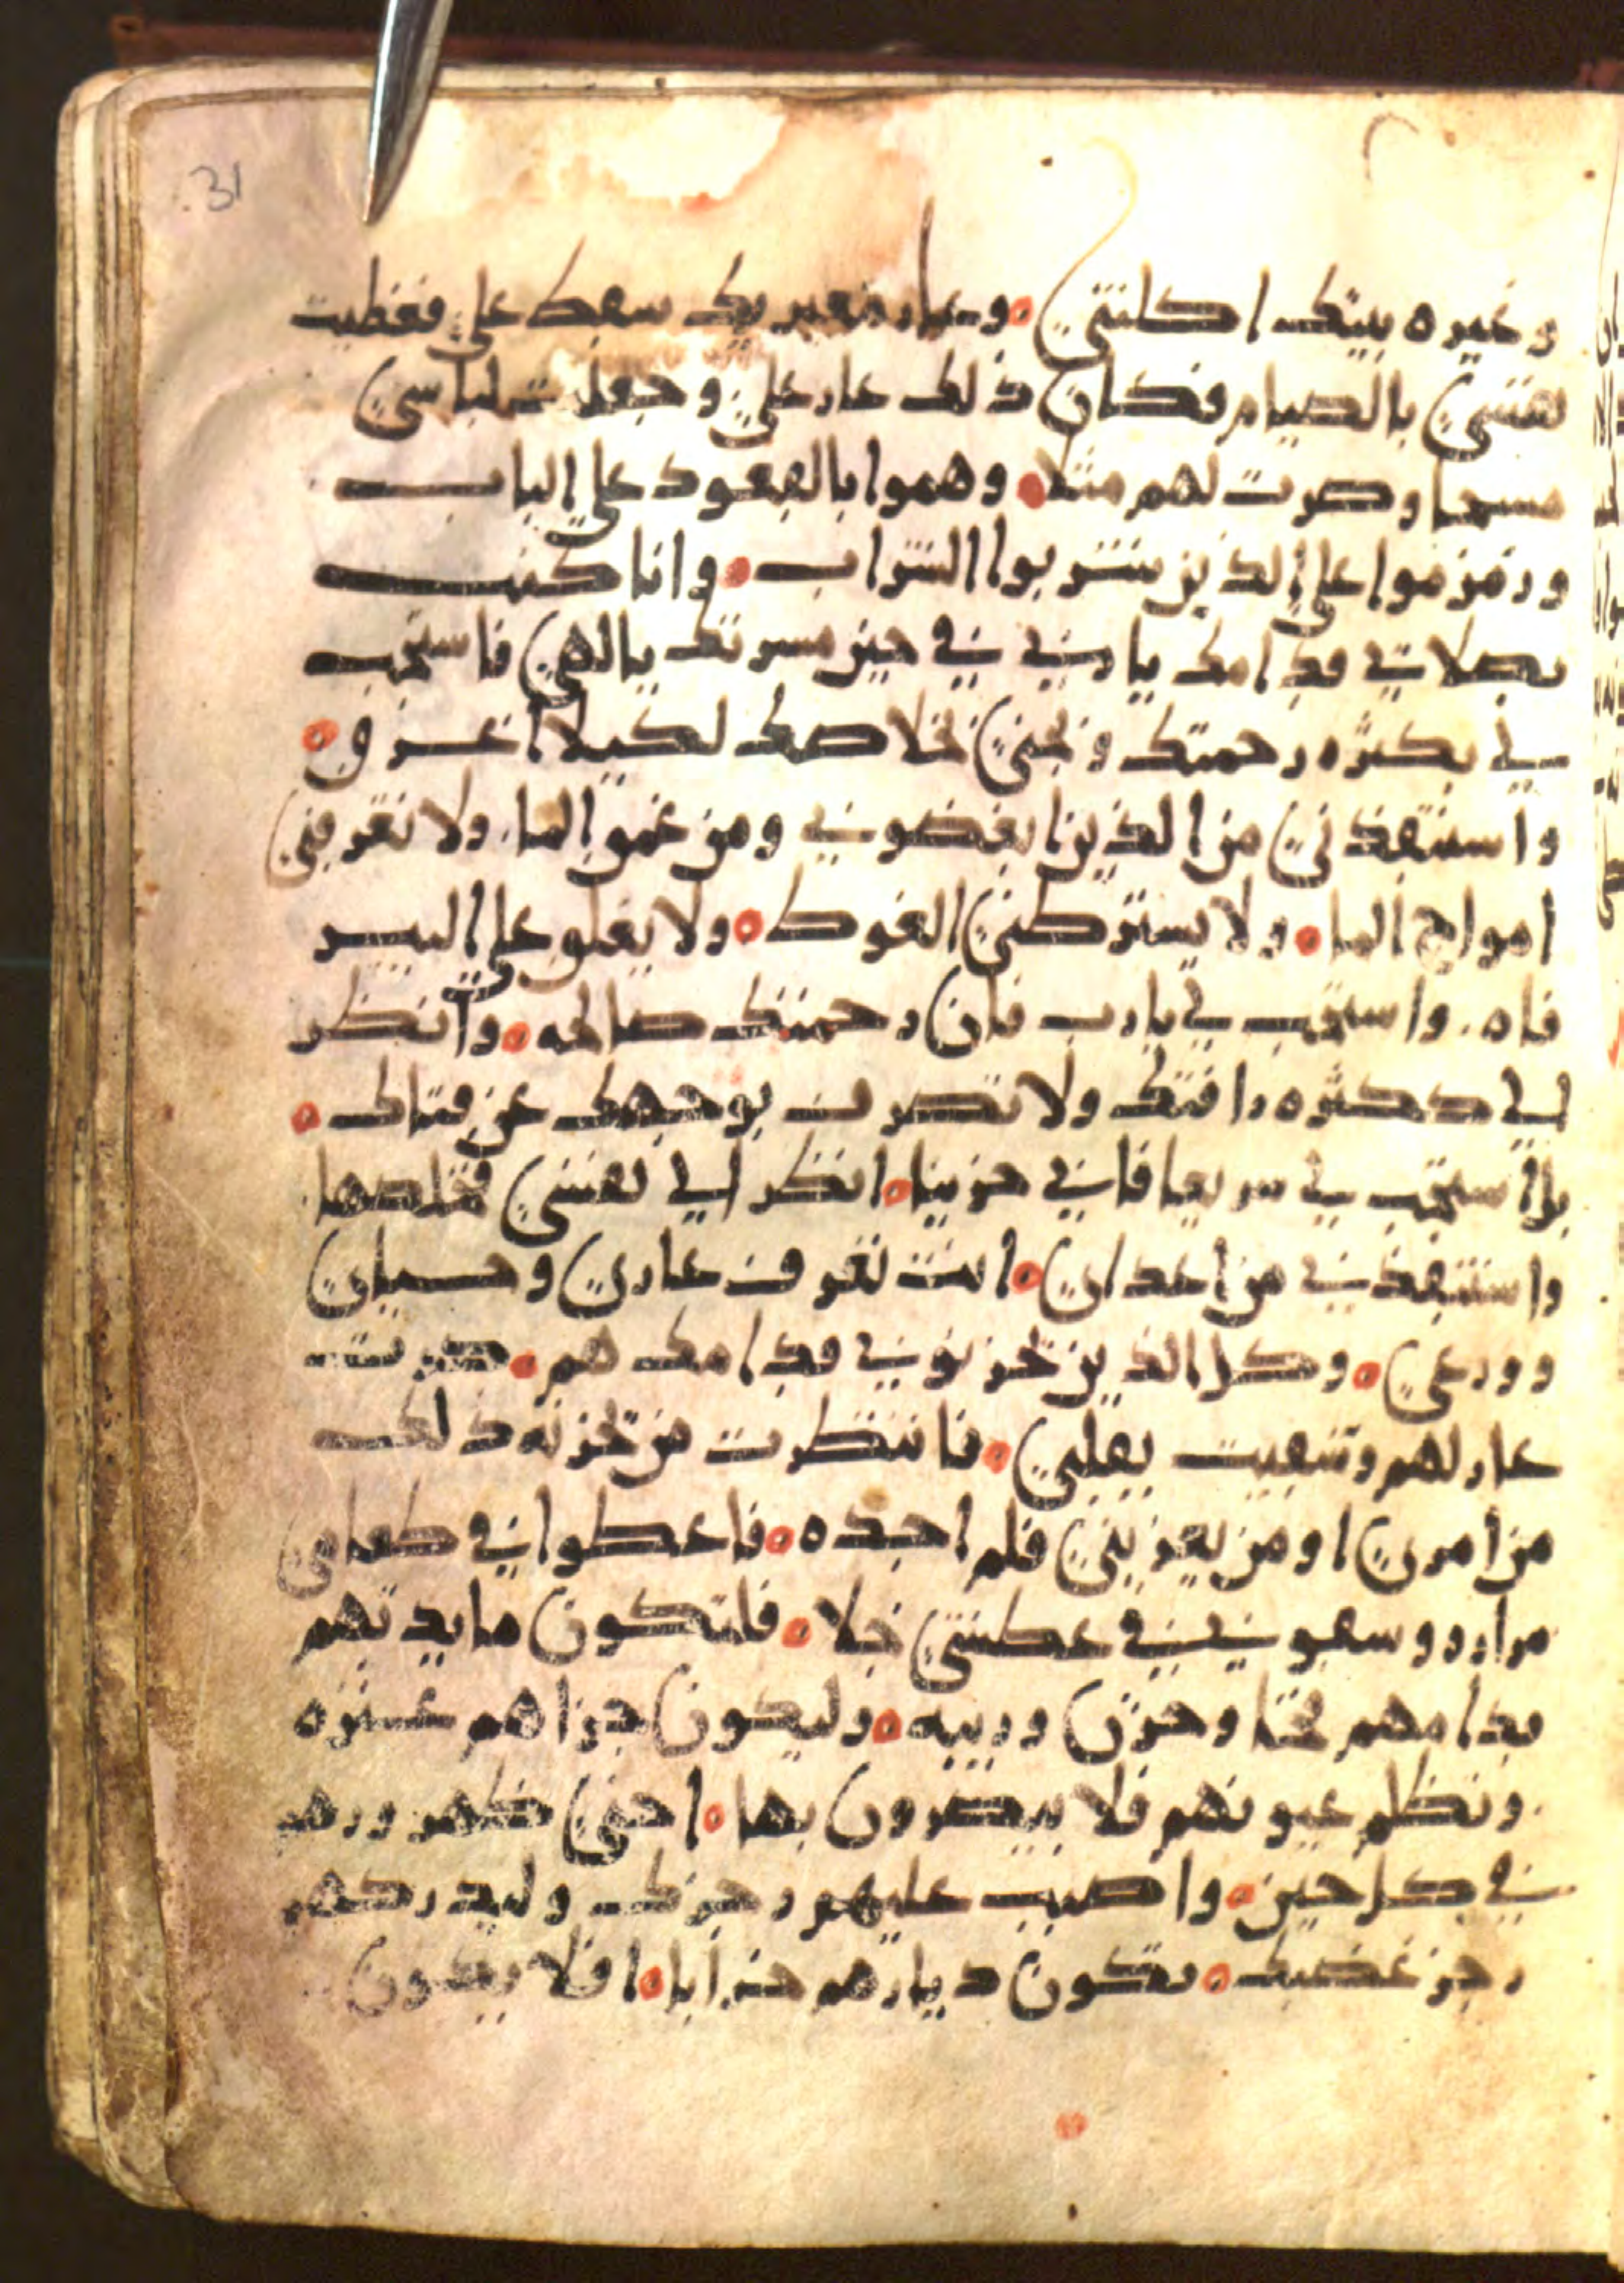 31
وغيره بيتك اكلتني • وعار معيريك سقط علي فغطيت
نفسي بالصيام فكان ذلك عار علي وجعلت لباسي
مسحا وصرت لهم مثلا • وهموا بالقعود علي الباب
وزمزموا علي الذين يشربوا الشراب • وانا كنت
بصلاتي قدامك يا ربي في حين مسرتك يا الهي فاستجب
لي بكثره رحمتك ونجني بخلاصك لكيلا اغرق •
واستنقذني من الذين يبغضوني ومن غمق الما ولا تغرقني
امواج الما • ولا يسترطني الغوط • ولا يغلق علي البير
فاه واستجب لي يا رب فان رحمتك صالحه • وانظر
لي بكثره رافتك ولا تصرف بوجهك عن فتاك •
بل استجب لي سريعا فاني حزينا • انظر الي نفسي فخلصها
واستنقذني من اعداي • انت تعرف عاري وحسباي
وورعي • وكل الذين يحزنوني قدامك هم • صرت
عار لهم وتعبت بقلبي • فانتظرت من يحزنه ذلك
من امري او من يعزيني فلم اجده • فاعطوا في طعامي
مراره وسقوني في عطشي خلا • فلتكون مايدتهم
قدامهم فخا وحزن وريبه • وليكون جزاهم عثره
وتظلم عيونهم فلا يبصرون بها • احني ظهورهم
في كل حين • واصبب عليهم رجزك وليدركهم
رجز غضبك • تكون ديارهم خرابا • افلا يكون